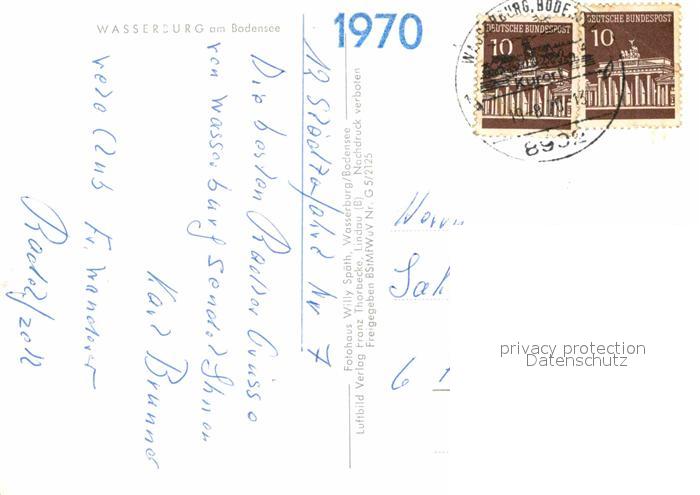 WASSERBURG am Bodensee
1970
12 Städtefahrt Nr 7
Die besten Radler Grüsse
von Wasserburg sendet Ihnen
Karl Brunner
velo Club Fr. Wanderer
Fotohaus Willy Späth, Wasserburg/Bodensee
Luftbild Verlag Franz Thorbecke, Lindau (B) Nachdruck verboten
Freigegeben BStMfWuV Nr. G 5/2125
DEUTSCHE BUNDESPOST
10
DEUTSCHE BUNDESPOST
10
WASSERBURG, BODEN
Kurort
8992
Herrn
6
privacy protection
Datenschutz